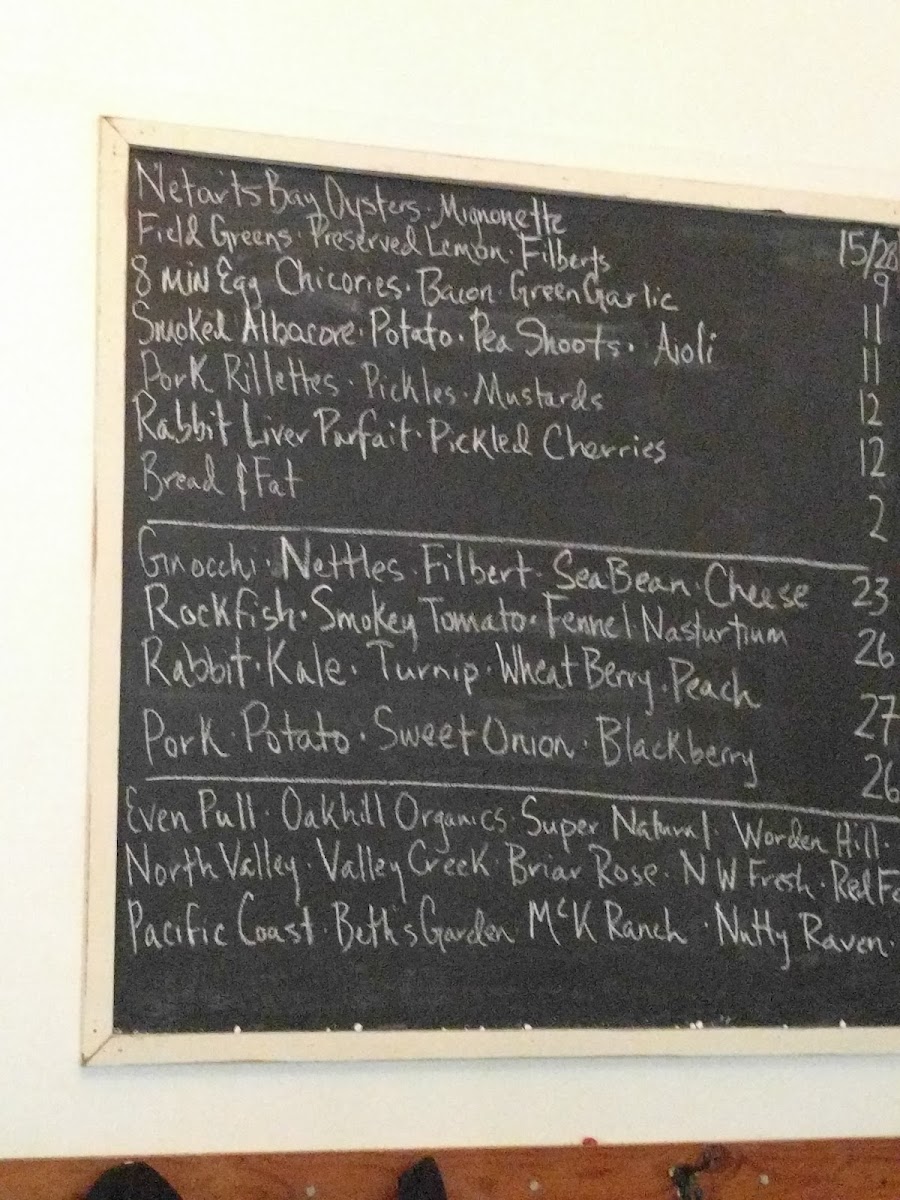 Netarts Bay Oysters · Mignonette 15/28
Field Greens · Preserved Lemon · Filberts 9
8 Min Egg Chicories · Bacon · Green Garlic 11
Smoked Albacore · Potato · Pea Shoots · Aioli 11
Pork Rillettes · Pickles · Mustards 12
Rabbit Liver Parfait · Pickled Cherries 12
Bread & Fat 2
Gnocchi · Nettles · Filbert · Sea Bean · Cheese 23
Rockfish · Smokey Tomato · Fennel · Nasturtium 26
Rabbit · Kale · Turnip · Wheat Berry · Peach 27
Pork · Potato · Sweet Onion · Blackberry 26
Even Pull · Oakhill Organics · Super Natural · Worden Hill ·
North Valley · Valley Creek · Briar Rose · NW Fresh · Red Fo
Pacific Coast · Beth's Garden McK Ranch · Nutty Raven ·